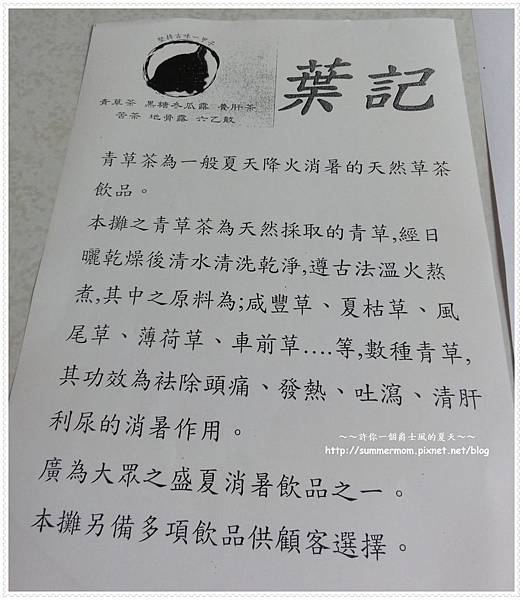 堅持古味一甲子
葉記
青草茶 黑糖冬瓜露 養肝茶
苦茶 地骨露 六乙散
青草茶為一般夏天降火消暑的天然草茶
飲品。
本攤之青草茶為天然採取的青草,經日
曬乾燥後清水清洗乾淨,遵古法溫火熬
煮,其中之原料為;咸豐草、夏枯草、風
尾草、薄荷草、車前草....等,數種青草,
其功效為袪除頭痛、發熱、吐瀉、清肝
利尿的消暑作用。
廣為大眾之盛夏消暑飲品之一。
本攤另備多項飲品供顧客選擇。
~~許你一個爵士風的夏天~~
http://summermom.pixnet.net/blog